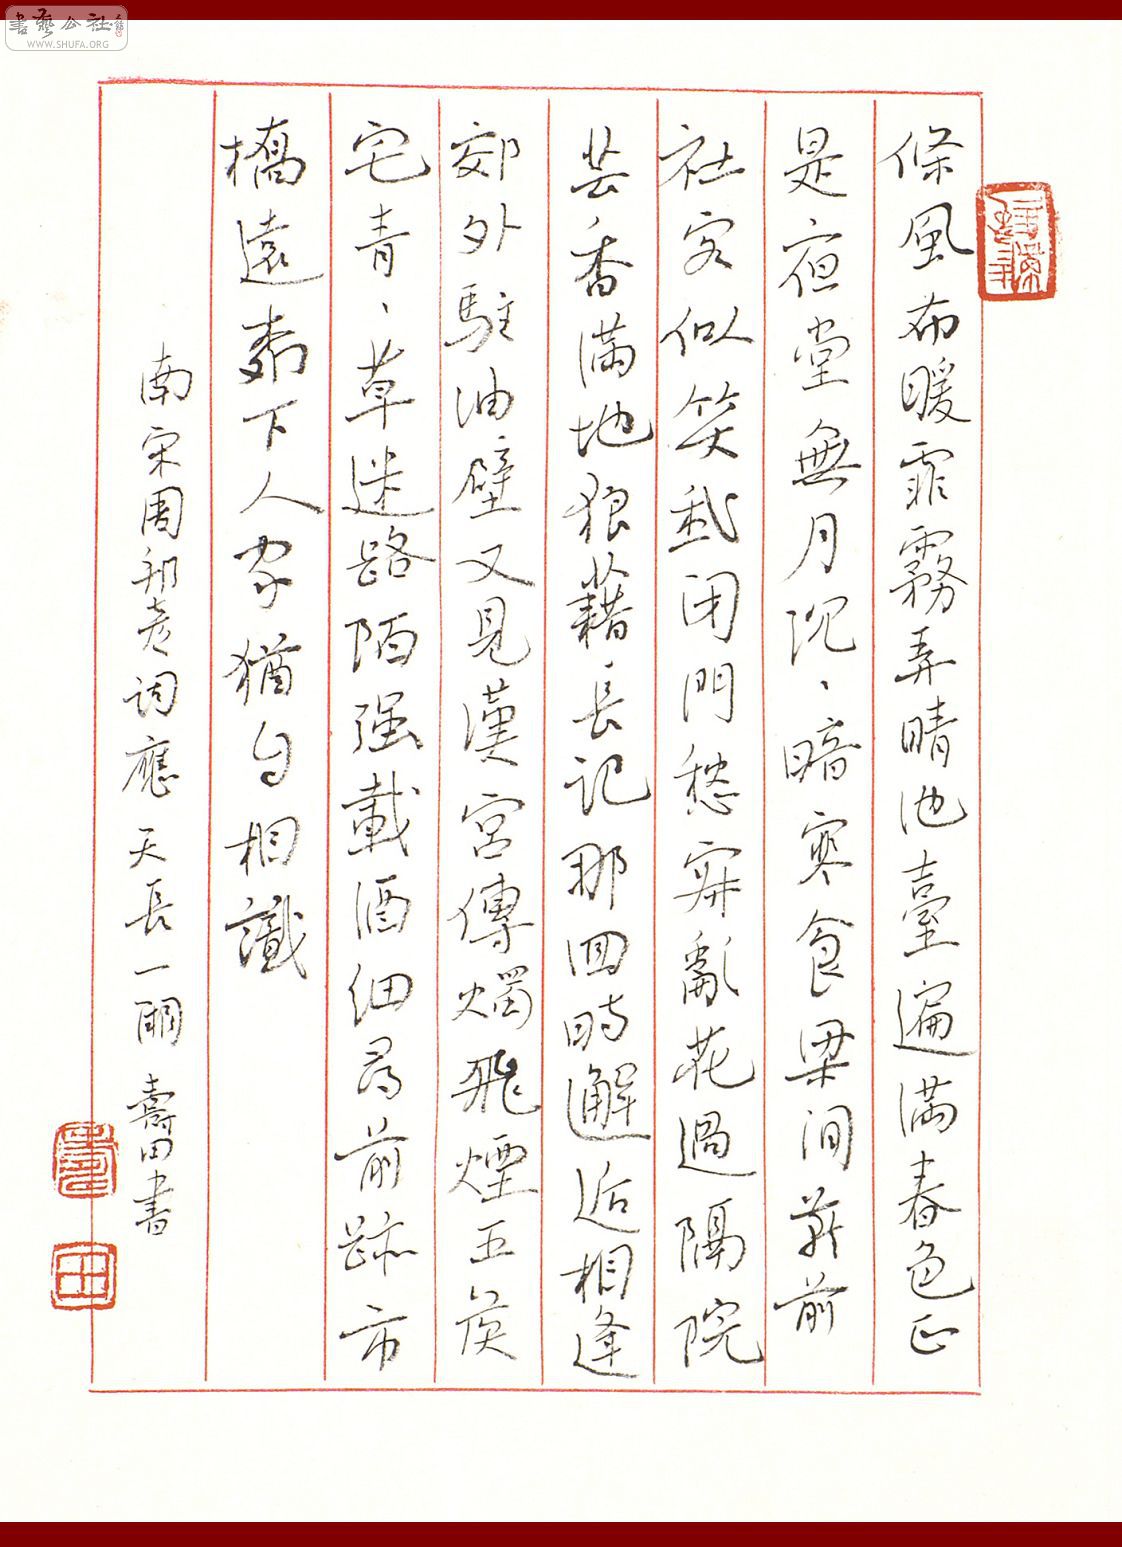 書藝公社
WWW.SHUFA.ORG
條風布暖霏霧弄晴池臺遍滿春色正
是夜堂無月沉、暗寒食梁間燕前
社客似笑我閉門愁寂亂花過隔院
芸香滿地狼藉長記那回時邂逅相逢
郊外駐油壁又見漢宮傳燭飛煙五侯
宅青、草迷路陌强載酒細尋前跡市
橋遠柳下人家猶自相識
南宋周邦彥詞應天長一闋 壽田書
壽
田